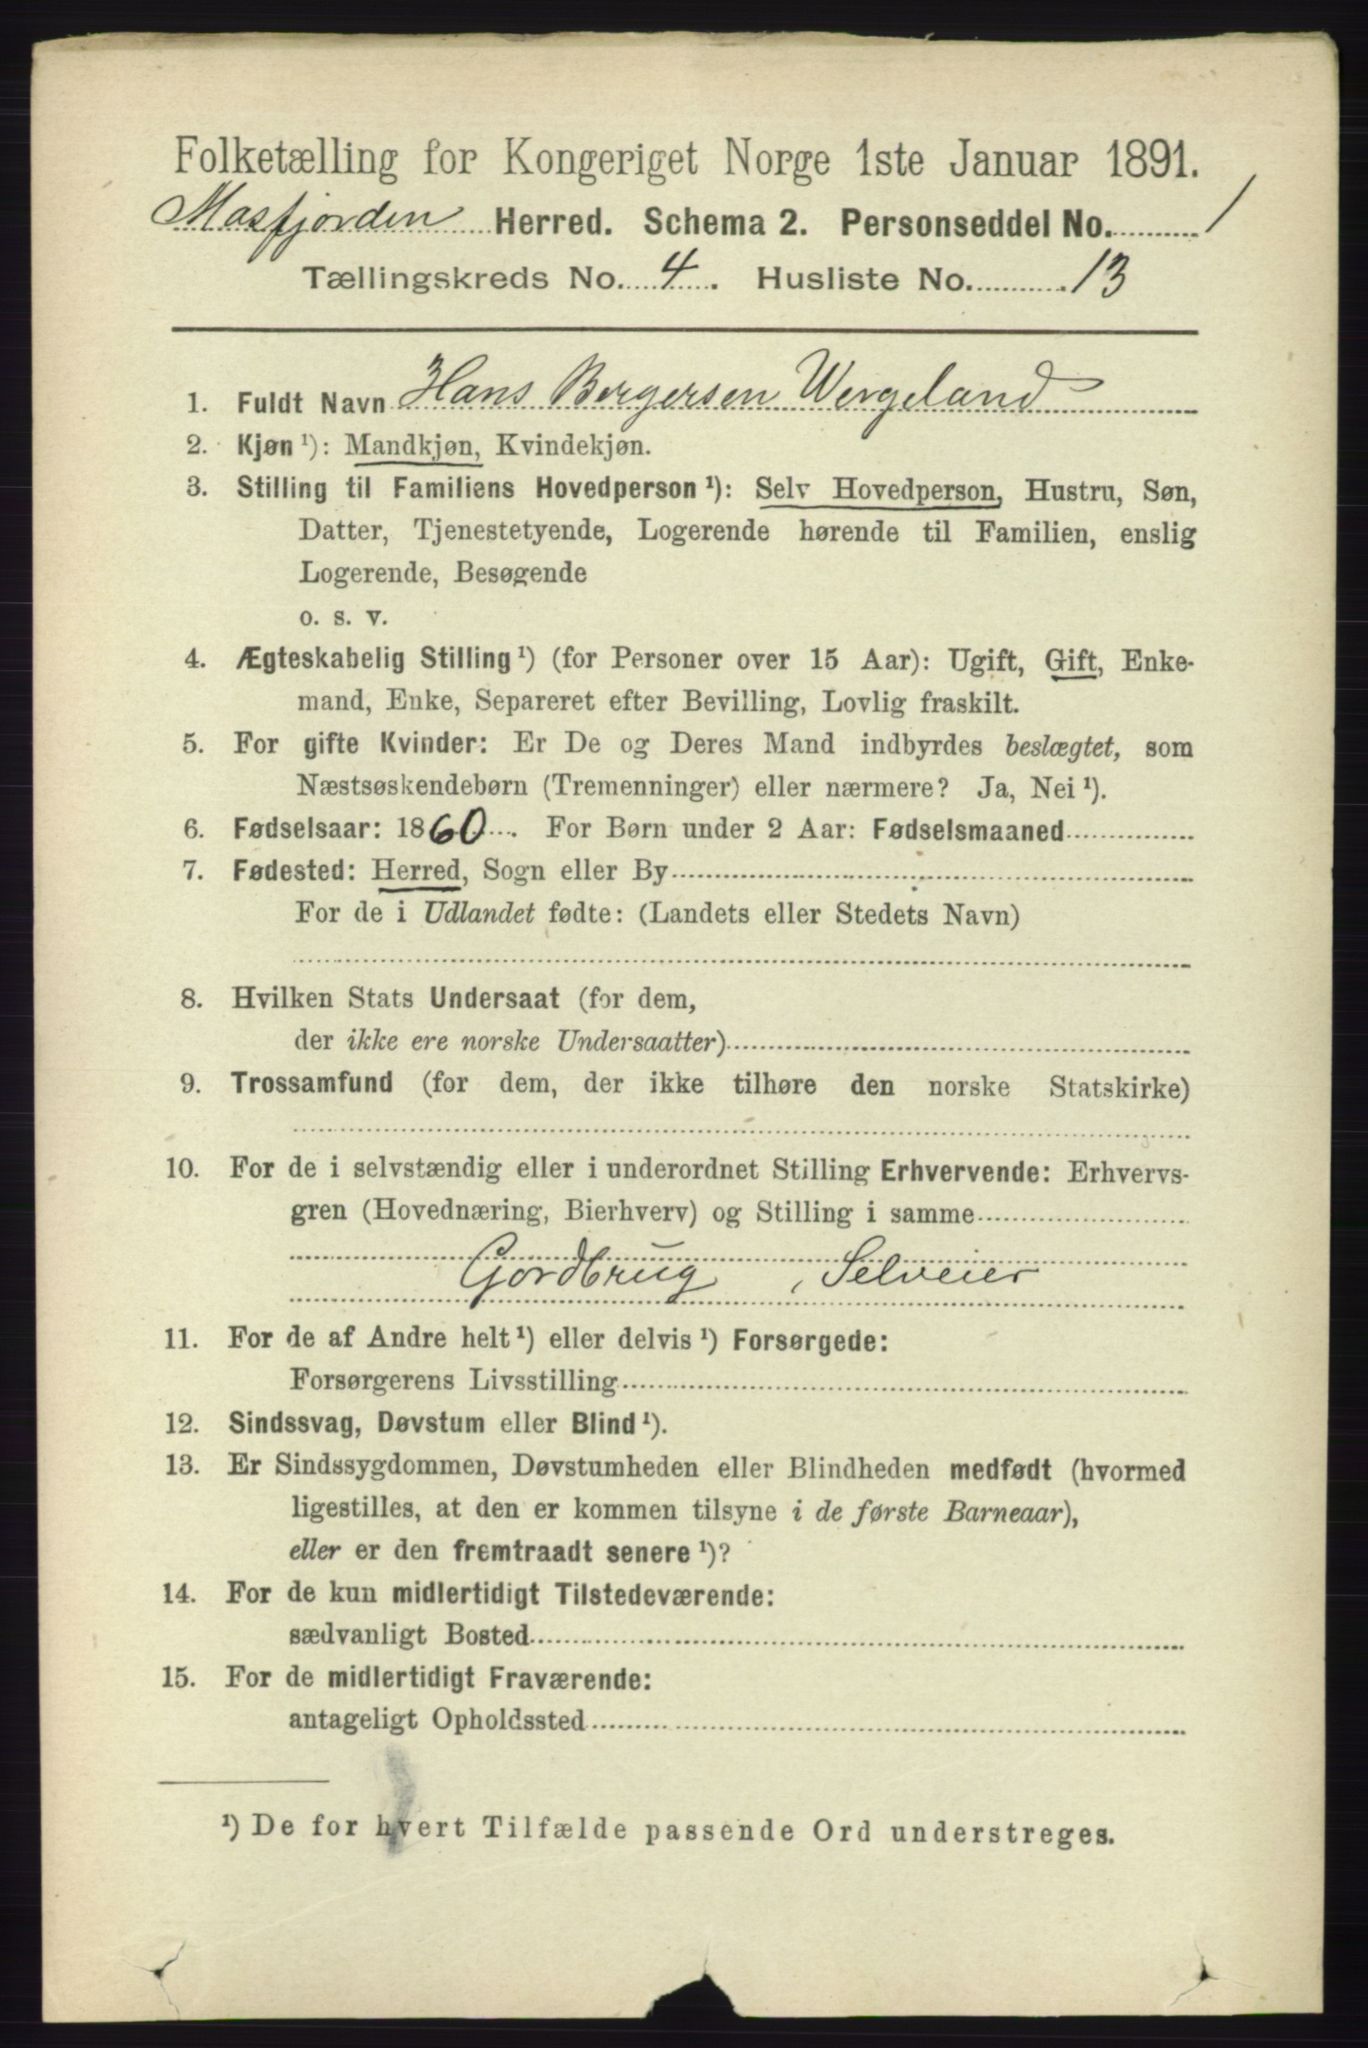 Folketælling for Kongeriget Norge 1ste Januar 1891.
Masfjorden Herred. Schema 2. Personseddel No. 1
Tællingskreds No. 4. Husliste No. 13
1. Fuldt Navn Hans Bergersen Wergeland
2. Kjøn ¹): Mandkjøn, Kvindekjøn.
3. Stilling til Familiens Hovedperson ¹): Selv Hovedperson, Hustru, Søn,
Datter, Tjenestetyende, Logerende hørende til Familien, enslig
Logerende, Besøgende
o. s. v.
4. Ægteskabelig Stilling ¹) (for Personer over 15 Aar): Ugift, Gift, Enke-
mand, Enke, Separeret efter Bevilling, Lovlig fraskilt.
5. For gifte Kvinder: Er De og Deres Mand indbyrdes beslægtet, som
Næstsøskendebørn (Tremenninger) eller nærmere? Ja, Nei ¹).
6. Fødselsaar: 1860. For Børn under 2 Aar: Fødselsmaaned
7. Fødested: Herred, Sogn eller By
For de i Udlandet fødte: (Landets eller Stedets Navn)
8. Hvilken Stats Undersaat (for dem,
der ikke ere norske Undersaatter)
9. Trossamfund (for dem, der ikke tilhøre den norske Statskirke)
10. For de i selvstændig eller i underordnet Stilling Erhvervende: Erhvervs-
gren (Hovednæring, Bierhverv) og Stilling i samme
Gordbrug, Selveier
11. For de af Andre helt ¹) eller delvis ¹) Forsørgede:
Forsørgerens Livsstilling
12. Sindssvag, Døvstum eller Blind ¹).
13. Er Sindssygdommen, Døvstumheden eller Blindheden medfødt (hvormed
ligestilles, at den er kommen tilsyne i de første Barneaar),
eller er den fremtraadt senere ¹)?
14. For de kun midlertidigt Tilstedeværende:
sædvanligt Bosted
15. For de midlertidigt Fraværende:
antageligt Opholdssted
¹) De for hvert Tilfælde passende Ord understreges.